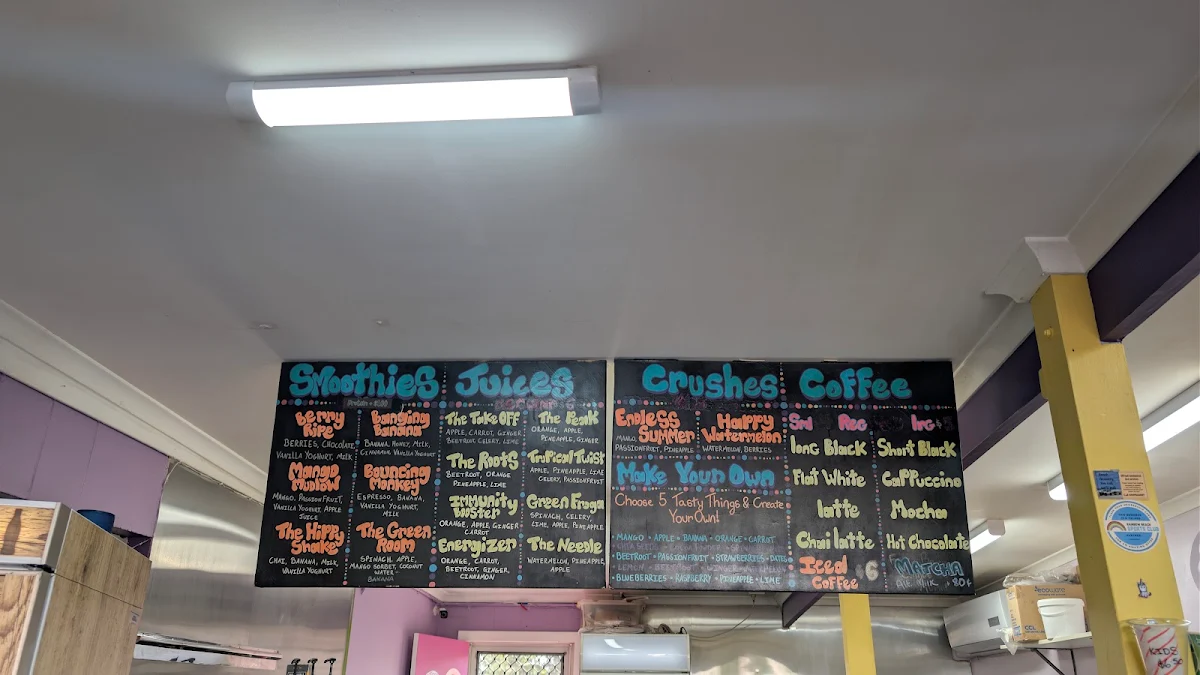 Smoothies
Berry
Ripe
BERRIES, CHOCOLATE,
VANILLA YOGHURT, MILK
Mango
Mellow
MANGO, PASSIONFRUIT,
VANILLA YOGHURT, APPLE
JUICE
The Hippy
Shake
CHAI, BANANA, MILK,
VANILLA YOGHURT
Banging
Banana
BANANA, HONEY, MILK,
CINNAMON, VANILLA YOGHURT
Bouncing
Monkey
ESPRESSO, BANANA,
VANILLA YOGHURT,
MILK
The Green
Room
SPINACH, APPLE,
MANGO SORBET, COCONUT
WATER
BANANA
Juices
The Take Off
APPLE, CARROT, GINGER
BEETROOT, CELERY, LIME
The Roots
BEETROOT, ORANGE
PINEAPPLE, LIME
Immunity
Twister
ORANGE, APPLE, GINGER
CARROT
Energizer
ORANGE, CARROT,
BEETROOT, GINGER,
CINNAMON
The Peak
ORANGE, APPLE,
PINEAPPLE, GINGER
Tropical Twist
APPLE, PINEAPPLE, LIME
CELERY, PASSIONFRUIT
Green Frog
SPINACH, CELERY,
LIME, APPLE, PINEAPPLE
The Needle
WATERMELON, PINEAPPLE,
APPLE
Crushes
Endless
Summer
MANGO,
PASSIONFRUIT, PINEAPPLE
Happy
Watermelon
WATERMELON, BERRIES
Make Your Own
Choose 5 Tasty Things & Create
Your Own!
MANGO • APPLE • BANANA • ORANGE • CARROT
BEETROOT • PASSIONFRUIT • STRAWBERRIES • DATES
BLUEBERRIES • RASPBERRY • PINEAPPLE • LIME
Coffee
Reg
Long Black
Short Black
Flat White
Cappuccino
Latte
Mocha
Chai Latte
Hot Chocolate
Iced
Coffee
6
MATCHA
SPORTS CLUB
KIDS